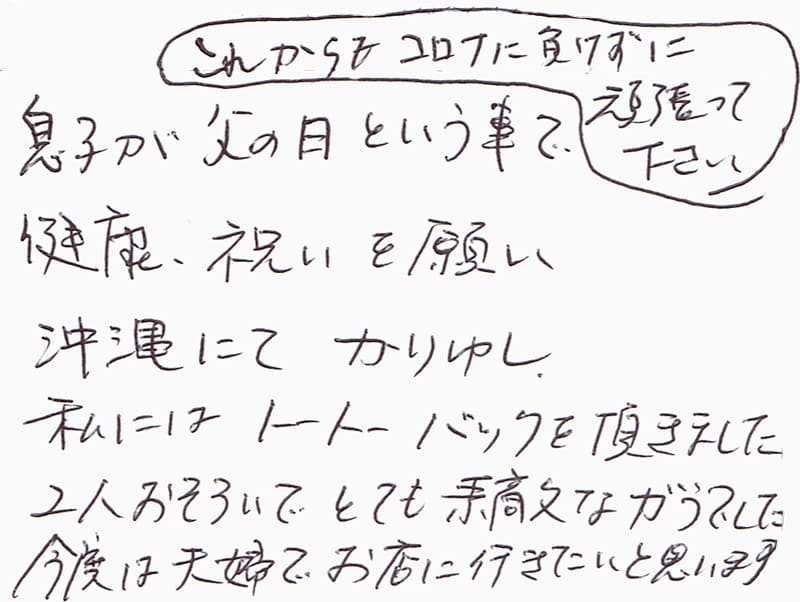 これからも コロナに負けずに
頑張って
下さい
息子が 父の日 という事で
健康、祝いを願い
沖縄にて かりゆし
私には トートーバックを頂きました
2人おそろいで とても素敵ながらでした
今度は夫婦で お店に行きたいと思います